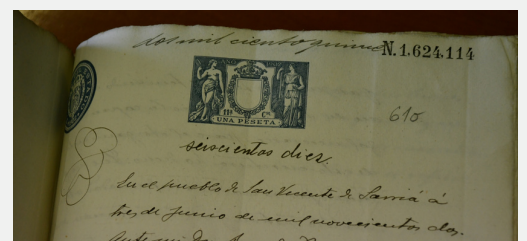 dos mil ciento quince
N.1.624.114
UNA PESETA
610
seiscientos diez.
En el pueblo de San Vicente de Sarriá á
tres de Junio de mil novecientos dos.
ante mi